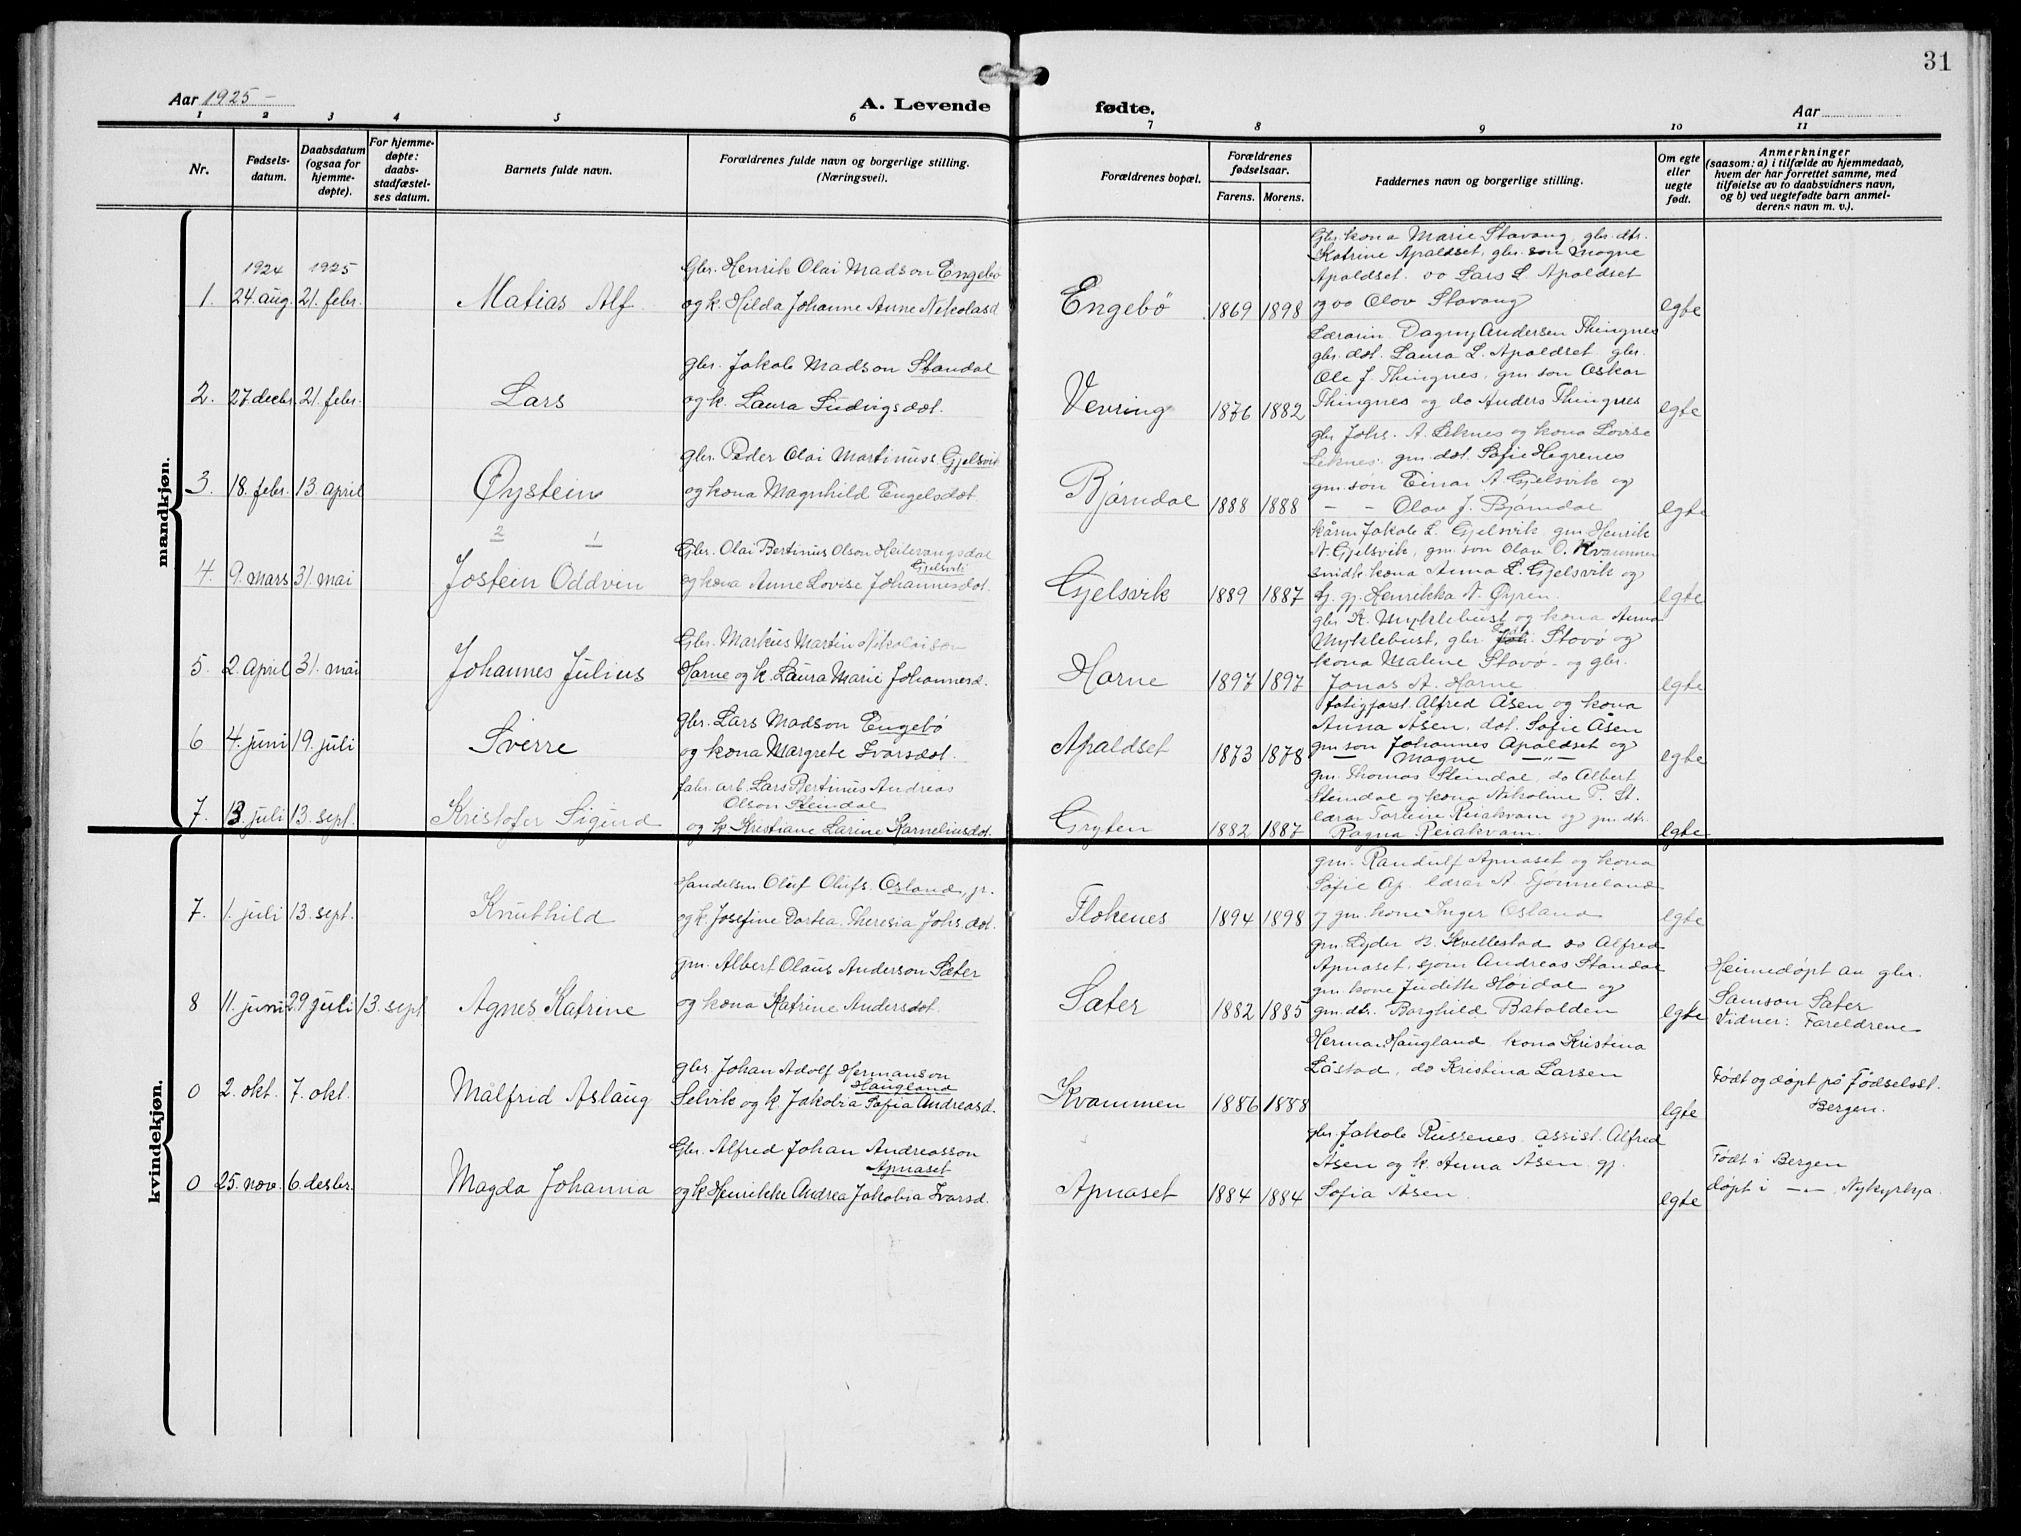 31
Aar 1925 –
A. Levende fødte.
Aar
1 2 3 4 5 6 7 8 9 10 11
Nr.
Fødsels-
datum.
Daabsdatum
(ogsaa for
hjemme-
døpte).
For hjemme-
døpte:
daabs-
stadfæstel-
ses datum.
Barnets fulde navn.
Forældrenes fulde navn og borgerlige stilling.
(Næringsvei).
Forældrenes bopæl.
Forældrenes
fødselsaar.
Farens. Morens.
Faddernes navn og borgerlige stilling.
Om egte
eller
uegte
født.
Anmerkninger
(saasom: a) i tilfælde av hjemmedaab,
hvem der har forrettet samme, med
tilføielse av to daabsvidners navn,
og b) ved uegtefødte barn anmel-
derens navn m. v.).
mandkjøn.
1924 1925
1. 24. aug. 21. febr. Matias Alf
Gbr. Henrik Olai Madson Engebø
og k. Hilda Johanne Anne Nikolasd
Engebø 1869 1898
Gbr. kona Marie Stavang, gbr. dtr.
Katrine Apaldset, gbr. son Magne
Apaldset. do Lars L. Apaldset
og do Olav Stavang
egte
2. 27. decbr. 21. febr. Lars
gbr. Jakob Madson Standal
og k. Laura Ludvigsdot.
Vevring 1876 1882
Lærarin. Dagny Andersen Thingnes
gbr. dot. Laura L. Apaldset, gbr.
Ole J. Thingnes, gm. son Oskar
Thingnes og do Anders Thingnes
egte
3. 18. febr. 13 april Øystein
gbr. Peder Olai Martinuss. Gjelsvik
og kona Magnhild Engelsdot.
Bjørndal 1888 1888
gbr. Johs. A. Leknes og kona Lovise
Leknes. gm. dot. Sofie Hegrenes
gm. son Einar A. Gjelsvik og
– – Olav J. Bjørndal
egte
2 1
4. 9. mars 31. mai Jostein Oddven
Gbr. Olai Bertinus Olson Heilevangsdal
Gjelsvik
og kona Anne Lovise Johannesdot.
Gjelsvik 1889 1887
kårm. Jakob L. Gjelsvik, gm. Henrik
N. Gjelsvik, gm. son Olav O. Kvammen
smidk. kona Anna L. Gjelsvik og
tj. gj. Henrikka N. Øyren.
egte
5. 2. April 31. mai Johannes Julius
Gbr. Markus Martin Nikolaison
Horne og k. Laura Marie Johannesd.
Horne 1897 1897
gbr. K. Myklebust og kona Anna
Myklebust, gbr. Joh. Stavø og
kona Maline Stavø – og gbr.
Jonas A. Horne
egte
6 4. juni 19. juli Sverre
gbr. Lars Madson Engebø
og kona Margrete Ivarsdot.
Apaldset 1873 1878
fatigforst. Alfred Åsen og kona
Anna Åsen, dot. Sofie Åsen
gm. son Johannes Apaldset og
— Magne —„—
egte
7. 13. juli 13. sept. Kristofer Sigurd
fabr. arb. Lars Bertinus Andreas
Olson Steindal
og k. Kristiane Larine Karneliusdot.
Gryten 1882 1887
gm. Thomas Steindal, do Albert
Steindal og kona Nikoline P. St.
lærar Torleiv Reiakvam og gm. dtr.
Ragna Reiakvam.
egte
kvindekjøn.
7. 1. juli 13. sept. Knuthild
Handelsm. Oluf Olufs. Osland, jr.
og k. Josefine Dortea Theresia Johs. dot.
Flokenes 1894 1898
gm. Randulf Apnaset og kona
Sofie Ap. lærar A. Tjønneland
og gm. kone Inger Osland
egte
8 11. juni 29 juli 13. sept Agnes Katrine
gm. Albert Olaus Anderson Sæter
og kona Katrine Andersdot.
Sæter 1882 1885
gm. Lyder B. Kvellestad do Alfred
Apnaset, sjøm Andreas Standal
gm. kone Judette Høidal og
gm. dtr. Borghild Batalden
egte
Heimedøpt av gbr.
Samson Sæter
Vidner: Foreldrene
0 2. okt. 7. okt. Målfrid Aslaug
gbr. Johan Adolf Hermanson
Haugland
Selvik og k. Jakobia Sofia Andreasd.
Kvammen 1886 1888
Herman Haugland, kona Kristina
Låstad, do Kristina Larsen
egte
Født og døpt på Fødselsst.
Bergen.
0 25. nov. 6 desbr. Magda Johanna
Gbr. Alfred Johan Andreasson
Apnaset
og k. Henrikke Andrea Jakobia Ivarsd.
Apnaset 1884 1884
gbr. Jakob Russenes, assist. Alfred
Åsen og k. Anna Åsen, gj.
Sofia Åsen.
egte
Født i Bergen
døpt i —„— Nykyrkja.